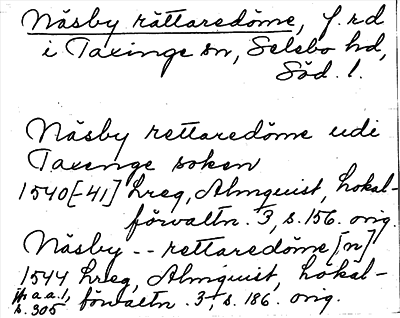 Näsby rättaredöme, f.rd
i Taxinge sn, Selebo hd,
Söd. l.
Näsby rettaredöme udi
Taxenge soken
1540[-41] Lreg, Almquist, Lokal-
förvaltn. 3, s. 156. orig.
Näsby -- rettaredöme[n]
1544 Lreg, Almquist, Lokal-
förvaltn. 3, s. 186. orig.
a.a. 1,
s. 305